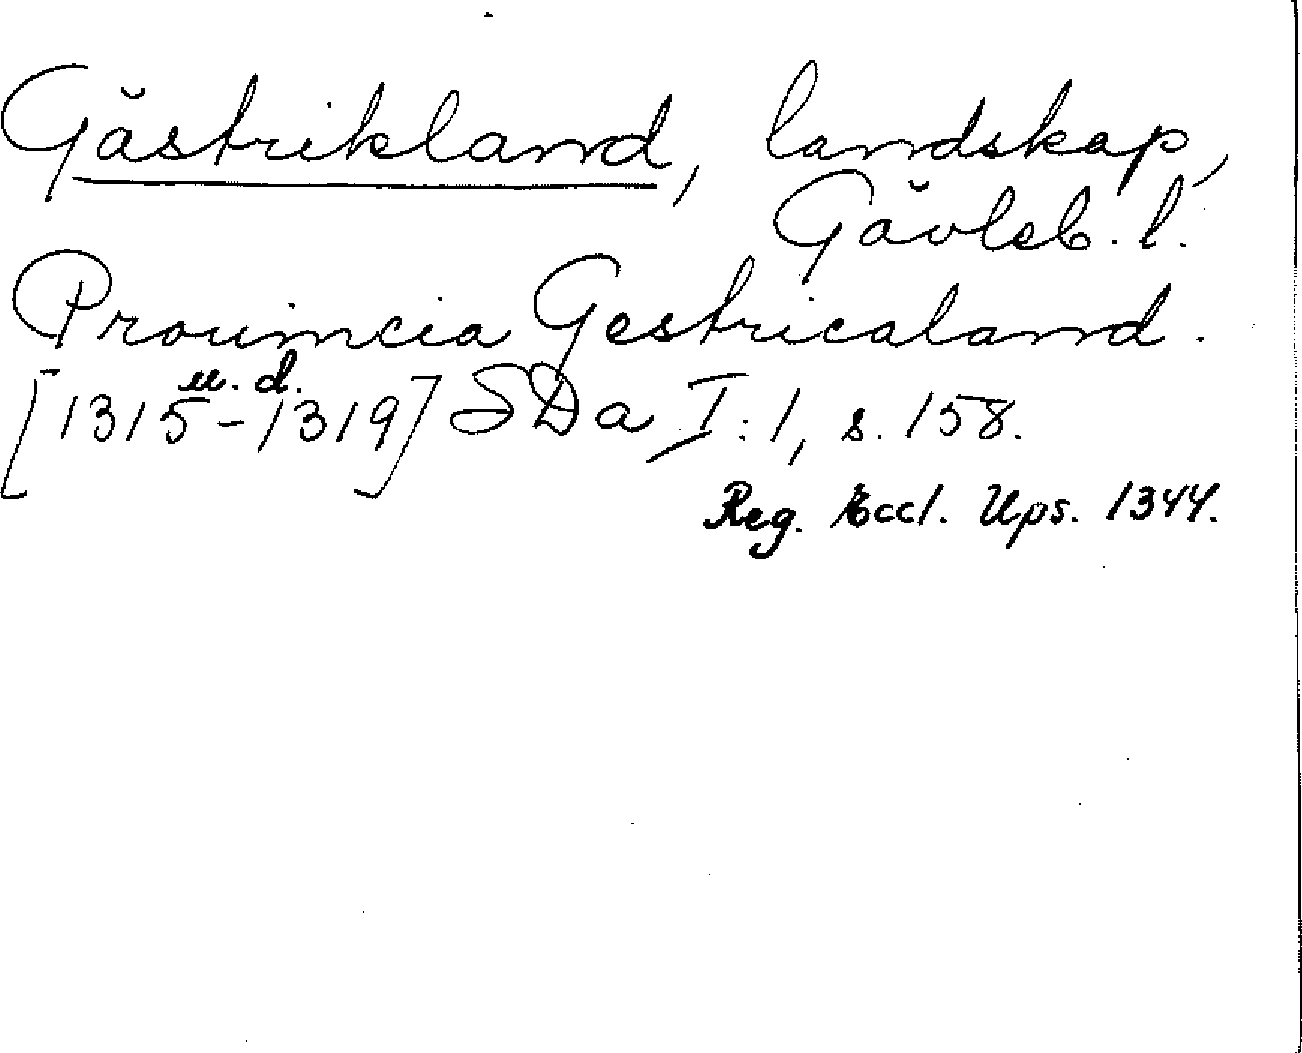 Gästrikland, landskap,
Gävleb. l.
Prouincia Gestricaland.
u. d.
[1315-1319] SDa I:1, s. 158.
Reg. Eccl. Ups. 1344.